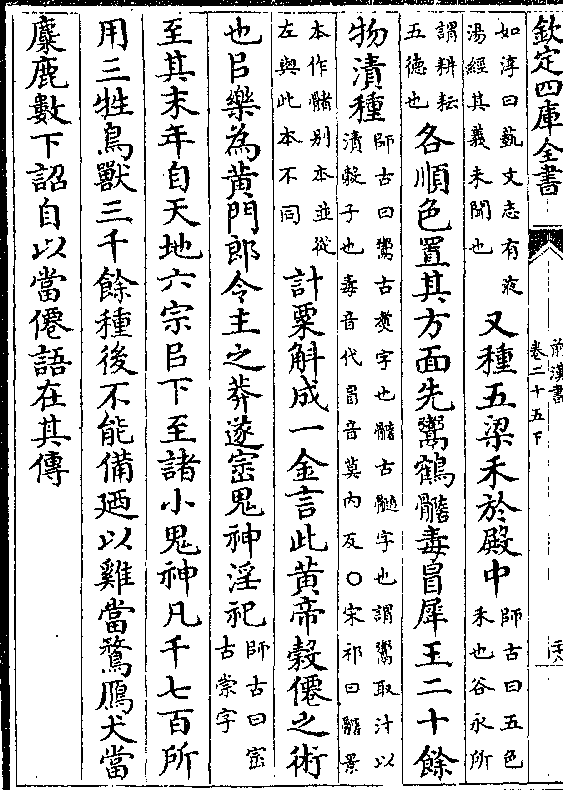 欽定四庫全書
前漢書
卷二十五下
如淳曰藝文志有液
湯經其義未聞也
又種五梁禾於殿中
師古曰五色
禾也谷永所
謂耕耘
五德也
各順色置其方面先鬻鶴髓毒冒犀玉二十餘
物漬種
師古曰鬻古煑字也髓古髓字也謂鬻取汁以
漬穀子也毒音代冒音莫内反○宋祁曰髓景
本作䯝别本並從
左與此本不同
計粟斛成一金言此黄帝穀僊之術
也㠯樂為黄門郎令主之莽遂崈鬼神淫祀
師古曰崈
古崇字
至其末年自天地六宗㠯下至諸小鬼神凡千七百所
用三牲鳥獸三千餘種後不能備廼以雞當鶩鴈犬當
麋鹿數下詔自以當僊語在其傳